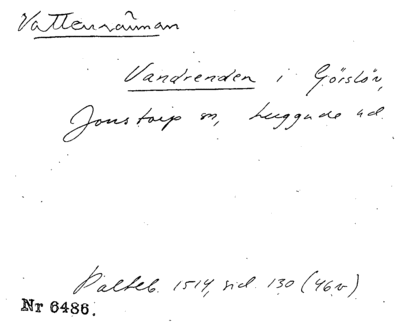 Vattenrännan
Vandrenden i Görslöv,
Jonstorp sn, huggade ad.
Palteb. 1514, sid. 130 (46v)
Nr 6486.